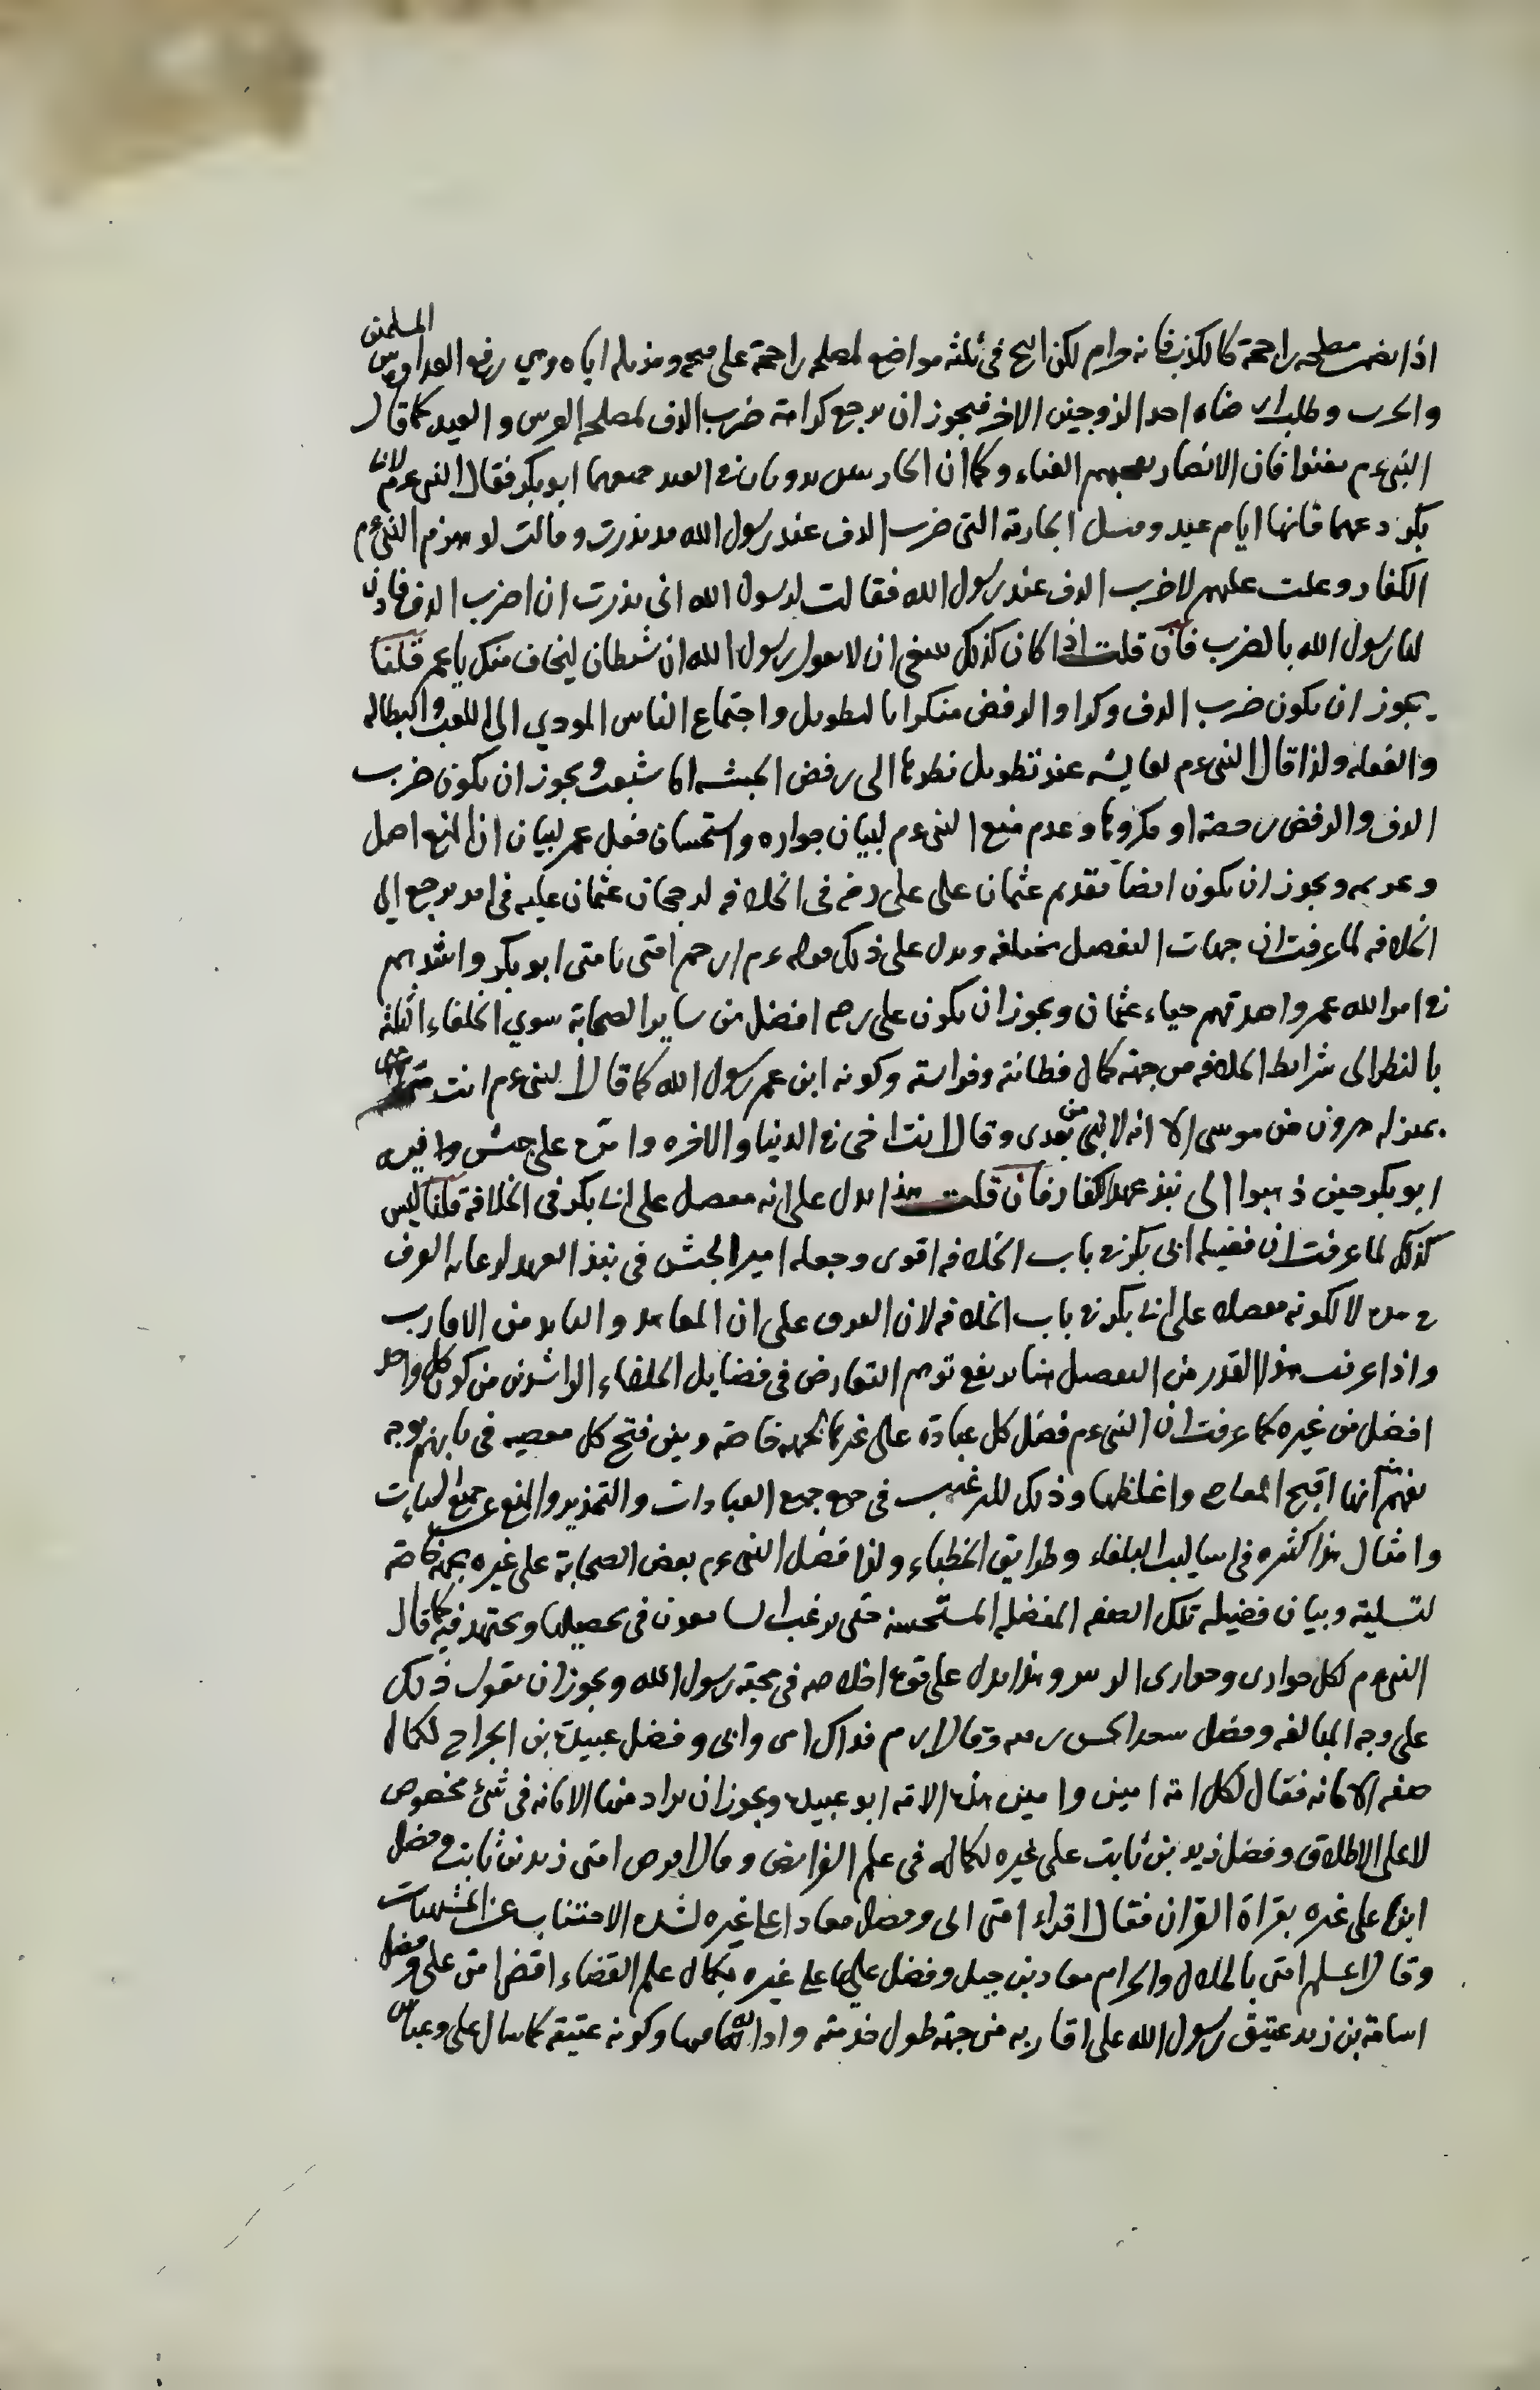 اذا تضمن مصلحة راجحة كالكذب فانه حرام لكن ابيح في ثلثه مواضع لمصلحة راجحة على قبحه ومزيلة اياه وهي رفع العداوة بين المسلمين
والحرب وطلب ارضاء احد الزوجين الاخر فيجوز ان يرجع كراهة ضرب الدف لمصلحة العرس والعيد كما قال
النبي عم فان الانصار يعجبهم الغناء وكما ان الجاريتين في العيد منعهما ابو بكر فقال النبي عم يا ابا
بكر دعهما فانها ايام عيد ومثل الجارية التي ضرب الدف عند رسول الله قد نذرت وقالت لو هزم النبي عم
الكفار وغلب عليهم لاضرب الدف عند رسول الله فقالت لرسول الله اني نذرت ان اضرب الدف فاذن
لها رسول الله بالضرب فان قلت اذا كان كذلك ينبغي ان لا يقول رسول الله ان شيطان ليخاف منك يا عمر قلنا
يجوز ان يكون ضرب الدف وكذا والرفض منكرا بالتطويل واجتماع الناس المودي الى اللعب والبطالة
والغفلة ولذا قال النبي عم لعايشه عند تطويل نظرها الى رفض الحبشه اما شبعت ويجوز ان يكون ضرب
الدف والرفض رخصة او مكروها وعدم منع النبي عم لبيان جوازه واستحسان فعل عمر لبيان ان المنع اصل
وعزيمه ويجوز ان يكون ايضا تقديم عثمان على علي رضه في الخلافه لرجحان عثمان عليه في امر يرجع الى
الخلافه لما عرفت ان جهات التفضيل مختلفه ويدل على ذلك قوله عم ارحم امتي بامتي ابو بكر واشدهم
في امر الله عمر واصدقهم حياء عثمان ويجوز ان يكون علي رضه افضل من ساير الصحابة سوي الخلفاء الثلثه
بالنظر الى شرائط الخلافه من جهة كمال فطانته وفراسته وكونه ابن عم رسول الله كما قال النبي عم انت مني
بمنزله هرون من موسى الا انه لا نبي من بعدي وقال انت اخي في الدنيا والاخره وامّره على جيش وافيه
ابو بكر حين ذهبوا الى نبذ عهد الكفار فان قلت هذا يدل على انه مفضل على ابي بكر في الخلافة قلنا ليس
كذلك لما عرفت ان فضيله ابي بكر في باب الخلافه اقوى وجعله امير الجيش في نبذ العهد لرعايه العرف
لا لكونه مفضلا على ابي بكر في باب الخلافه لان العرف على ان المعاهد والنابذ من الاقارب
واذا عرفت هذا القدر من التفصيل هنا يدفع توهم التعارض في فضايل الخلفاء الراشدين من كون كل واحد
افضل من غيره كما عرفت ان النبي عم فضل كل عبادة على غيرها بجهه خاصه وبين قبح كل معصيه في بابها بوجه
يفهم منه انها اقبح المعاصي واغلظها وذلك للترغيب في جميع العبادات والتحذير والمنع عن جميع السيئات
وامثال هذا كثيره في اساليب البلغاء وطرايق الخطباء ولذا فضل النبي عم بعض الصحابة على غيره بجهة خاصه
لتسلية وبيان فضيله تلك الصفه المفضله المستحسنه حتى يرغب السامعون في تحصيلها ويجتهد فيه كما قال
النبي عم لكل حواري وحواري الزبير وهذا يدل على قوة اخلاصه في محبة رسول الله ويجوز ان يقول ذلك
على وجه المبالغه وفضل سعدا وقال ارم فداك امي وابي وفضل عبيدة بن الجراح لكمال
صفه الامانه فقال لكل امة امين وامين هذه الامة ابو عبيدة ويجوز ان يراد منها الامانه في شئ مخصوص
لا على الاطلاق وفضل زيد بن ثابت على غيره لكماله في علم الفرايض وقال افرض امتي زيد بن ثابت وفضل
ابيا على غيره بقراة القران فقال اقراء امتي ابي وفضل معاذا على غيره لشدة الاجتناب عن المشتبهات
وقال اعلم امتي بالحلال والحرام معاذ بن جبل وفضل عليا على غيره بكمال علم القضاء اقضى امتي علي وفضل
اسامة بن زيد عتيق رسول الله على اقاربه من جهة طول خدمته وكونه عتيقه كما سال علي وعباس